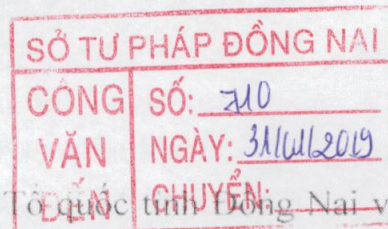 SỞ TƯ PHÁP ĐỒNG NAI
CÔNG VĂN ĐẾN
SỐ: 710
NGÀY: 31/01/2019
CHUYỂN:
Tổ quốc tỉnh Đồng Nai v